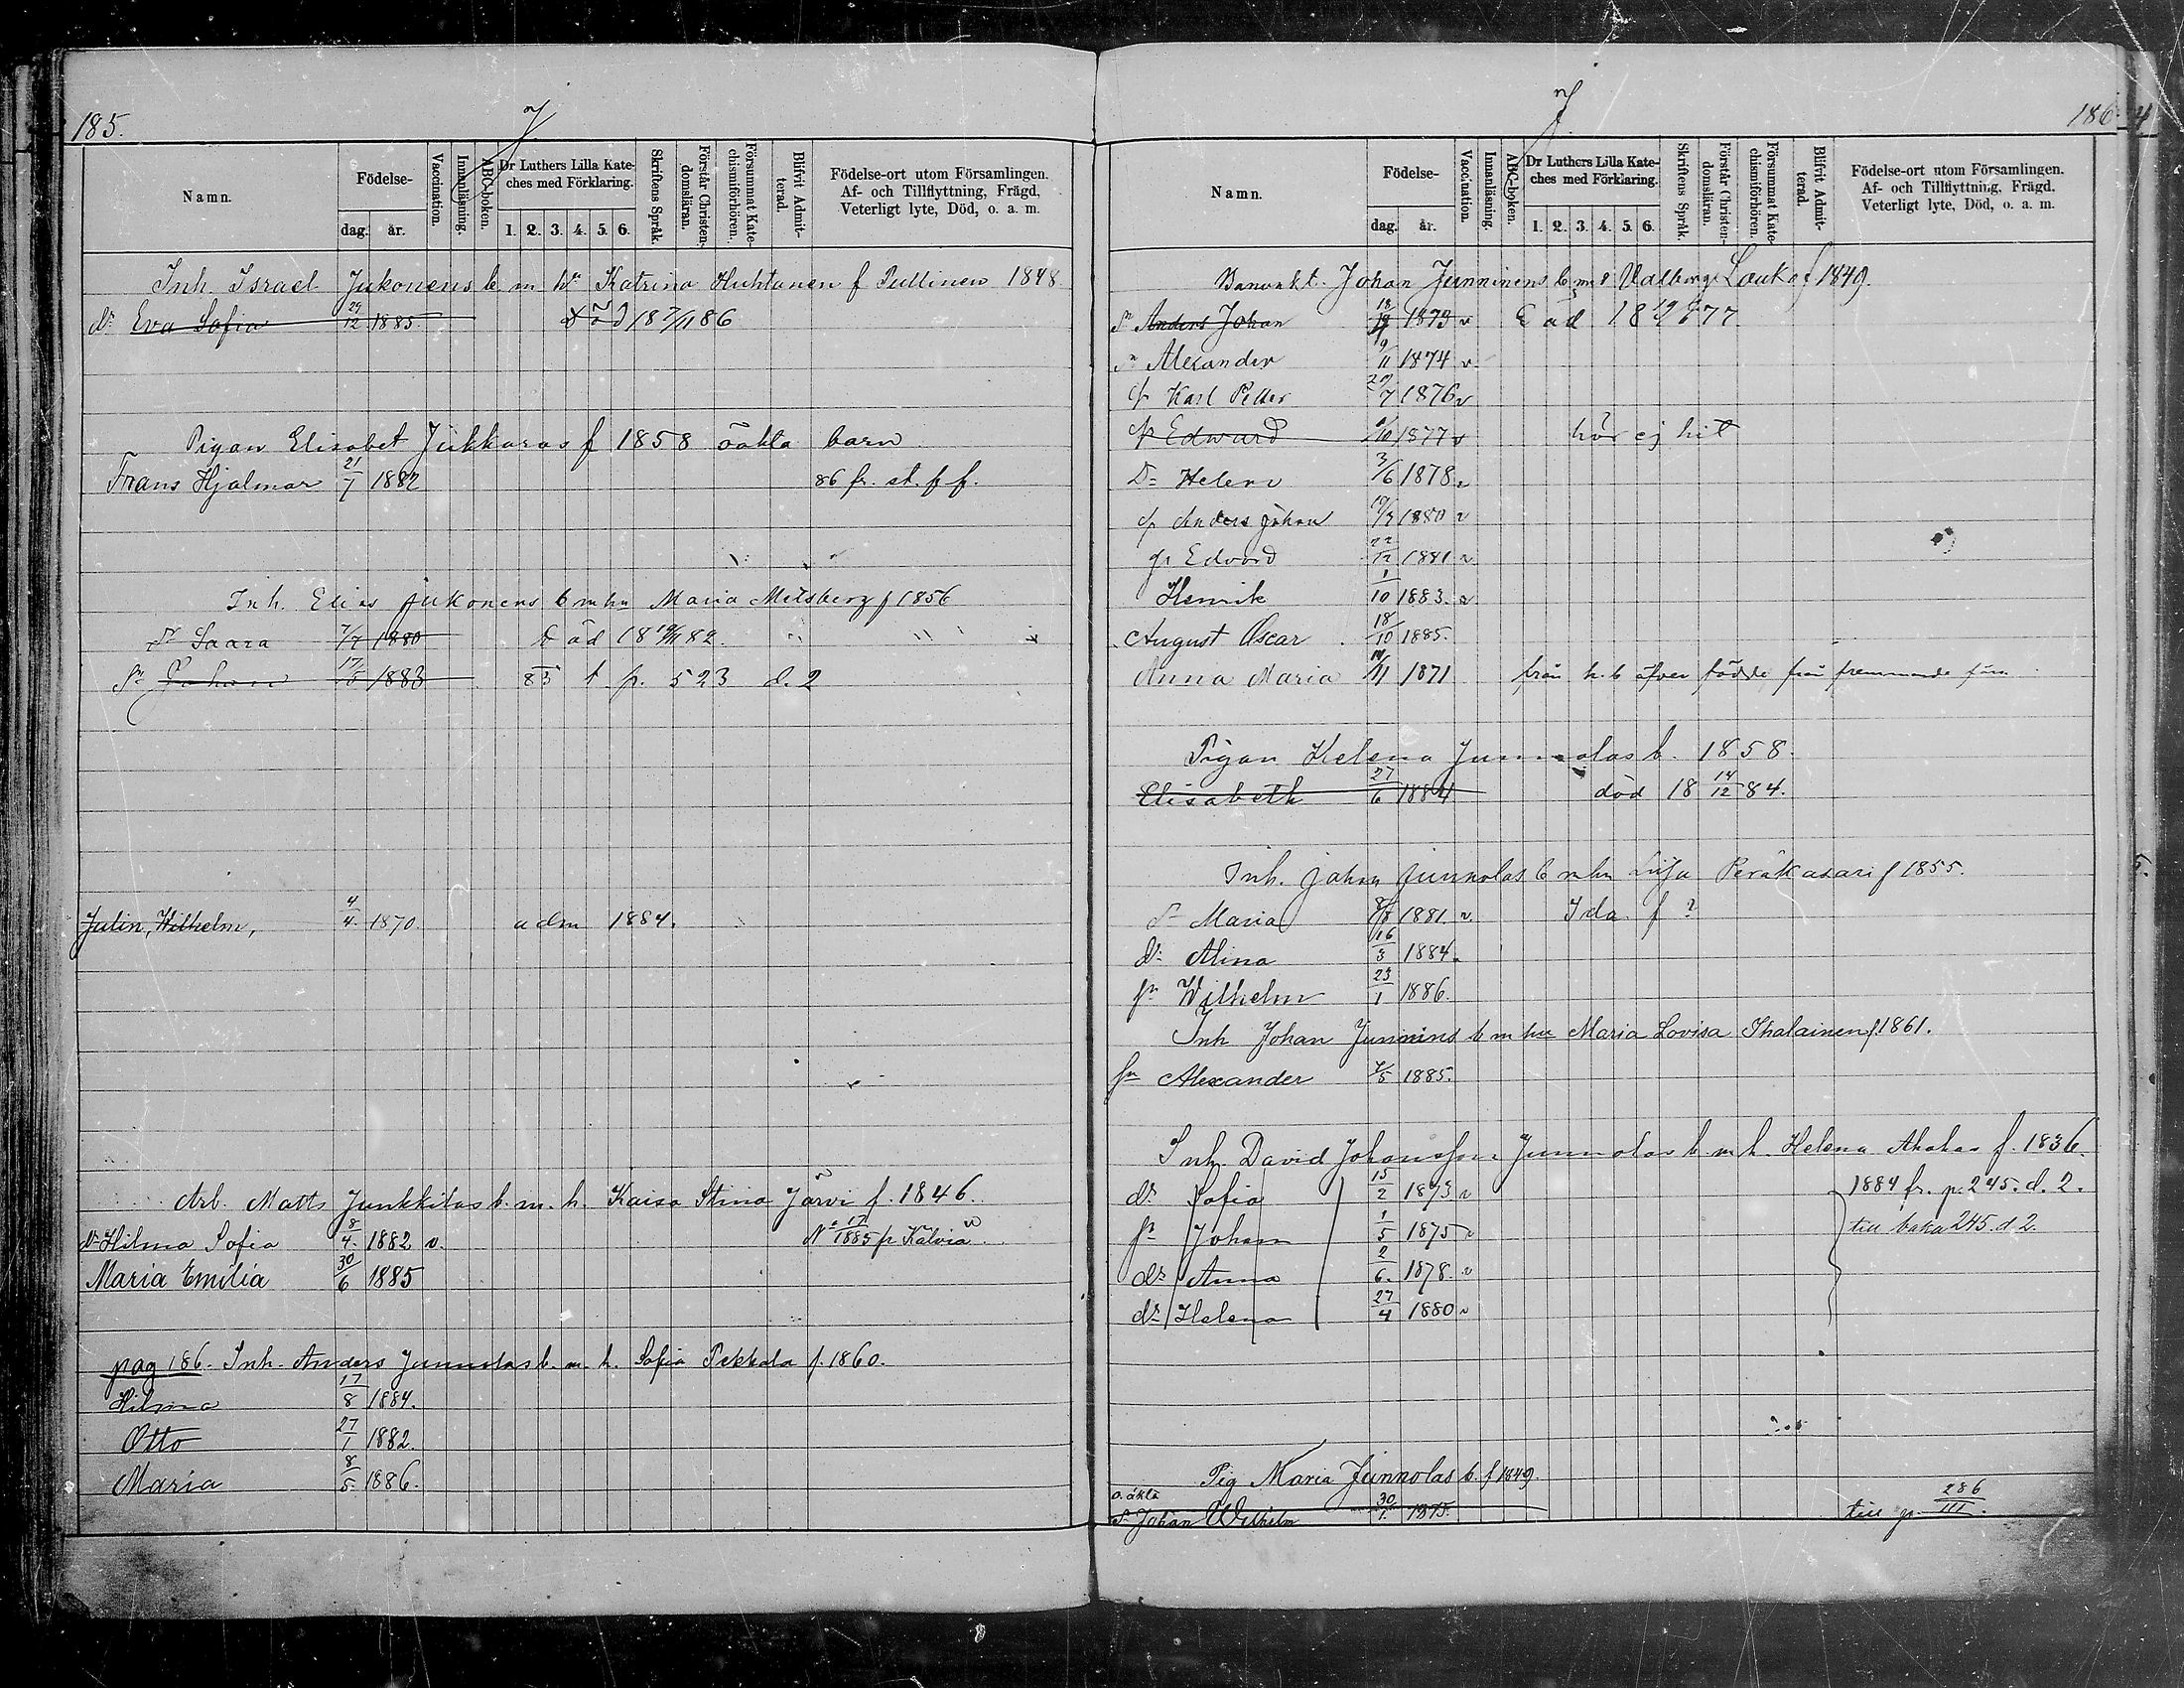 185.
J
Namn.
Födelse-
dag. år.
Vaccination.
Innanläsning.
ABC-boken.
Dr Luthers Lilla Kate-
ches med Förklaring.
1. 2. 3. 4. 5. 6.
Skriftens Språk.
Förstår Christen-
domsläran.
Försummat Kate-
chismiförhören.
Blifvit Admit-
terad.
Födelse-ort utom Församlingen.
Af- och Tillflyttning, Frägd,
Veterligt lyte, Död, o. a. m.
Inh. Israel Jukonens b m hu Katrina Huhtanen f Pullinen 1848
dr Eva Sofia 29/12 1885 Död 18 7/11 86
Pigan Elisabet Jukkaras f 1858 oäkta barn
Frans Hjalmar 21/7 1882 86 fr. st. p f.
Inh. Elias Jukonens b m hu Maria Mitsberg f 1856
dr Saara 7/7 1880 Död 18 19/11 82
Sn Johan 17/5 1883 85 t p. 523 d. 2
Julin, Wilhelm, 4/4 1870 adm 1884.
Arb. Matts Junkkilas b. m. h. Kaisa Stina Järvi f. 1846.
dr Hilma Sofia 8/4 1882 v. No 17 1885 fr Kälviä
Maria Emilia 30/6 1885
pag 186. Inh. Anders Junnolas b. m. h. Sofia Pekkala f. 1860.
Hilma 17/8 1884.
Otto 27/1 1882.
Maria 8/5 1886.
186
J
Namn.
Födelse-
dag. år.
Vaccination.
Innanläsning.
ABC-boken.
Dr Luthers Lilla Kate-
ches med Förklaring.
1. 2. 3. 4. 5. 6.
Skriftens Språk.
Förstår Christen-
domsläran.
Försummat Kate-
chismiförhören.
Blifvit Admit-
terad.
Födelse-ort utom Församlingen.
Af- och Tillflyttning, Frägd,
Veterligt lyte, Död, o. a. m.
Johan Junninens b m Valborg Lauka f 1849.
Sn Anders Johan 1873 v Död 18 77
Sn Alexander 9/11 1874 v
Sn Karl Petter 29/7 1876 v
Sn Edward 1877 v hör ej hit
Dr Helena 3/6 1878 v
Sn Anders Johan 1880 v
Sn Edvard 22/12 1881 v
Henrik 1/10 1883. v
August Oscar 18/10 1885.
Anna Maria 14/11 1871 från h. b öfver födde från fremmande förs.
Pigan Helena Junnolas b. 1858.
Elisabeth 27/6 1884 död 18 14/12 84.
Inh. Johan Junnolas b m hu Lisa Peräkasari f 1855.
Dr Maria 8/8 1881. v. Ida f ?
dr Alina 16/3 1884.
Sn Wilhelm 23/1 1886.
Inh Johan Junnins b m hu Maria Lovisa Ihalainen f. 1861.
Sn Alexander 7/5 1885.
Inh. David Johansson Junnolas b. m h. Helena Ahokas f. 1836.
dr Sofia 15/2 1873 v 1884 fr. p. 245. d. 2.
Sn Johan 1/5 1875 v till baka 245. d 2.
dr Anna 2/6. 1878. v
dr Helena 27/4 1880 v
Pig Maria Junnolas b. f 1849.
o. äkta
Sn Johan Wilhelm 30/1 1875. till p. 286/III.